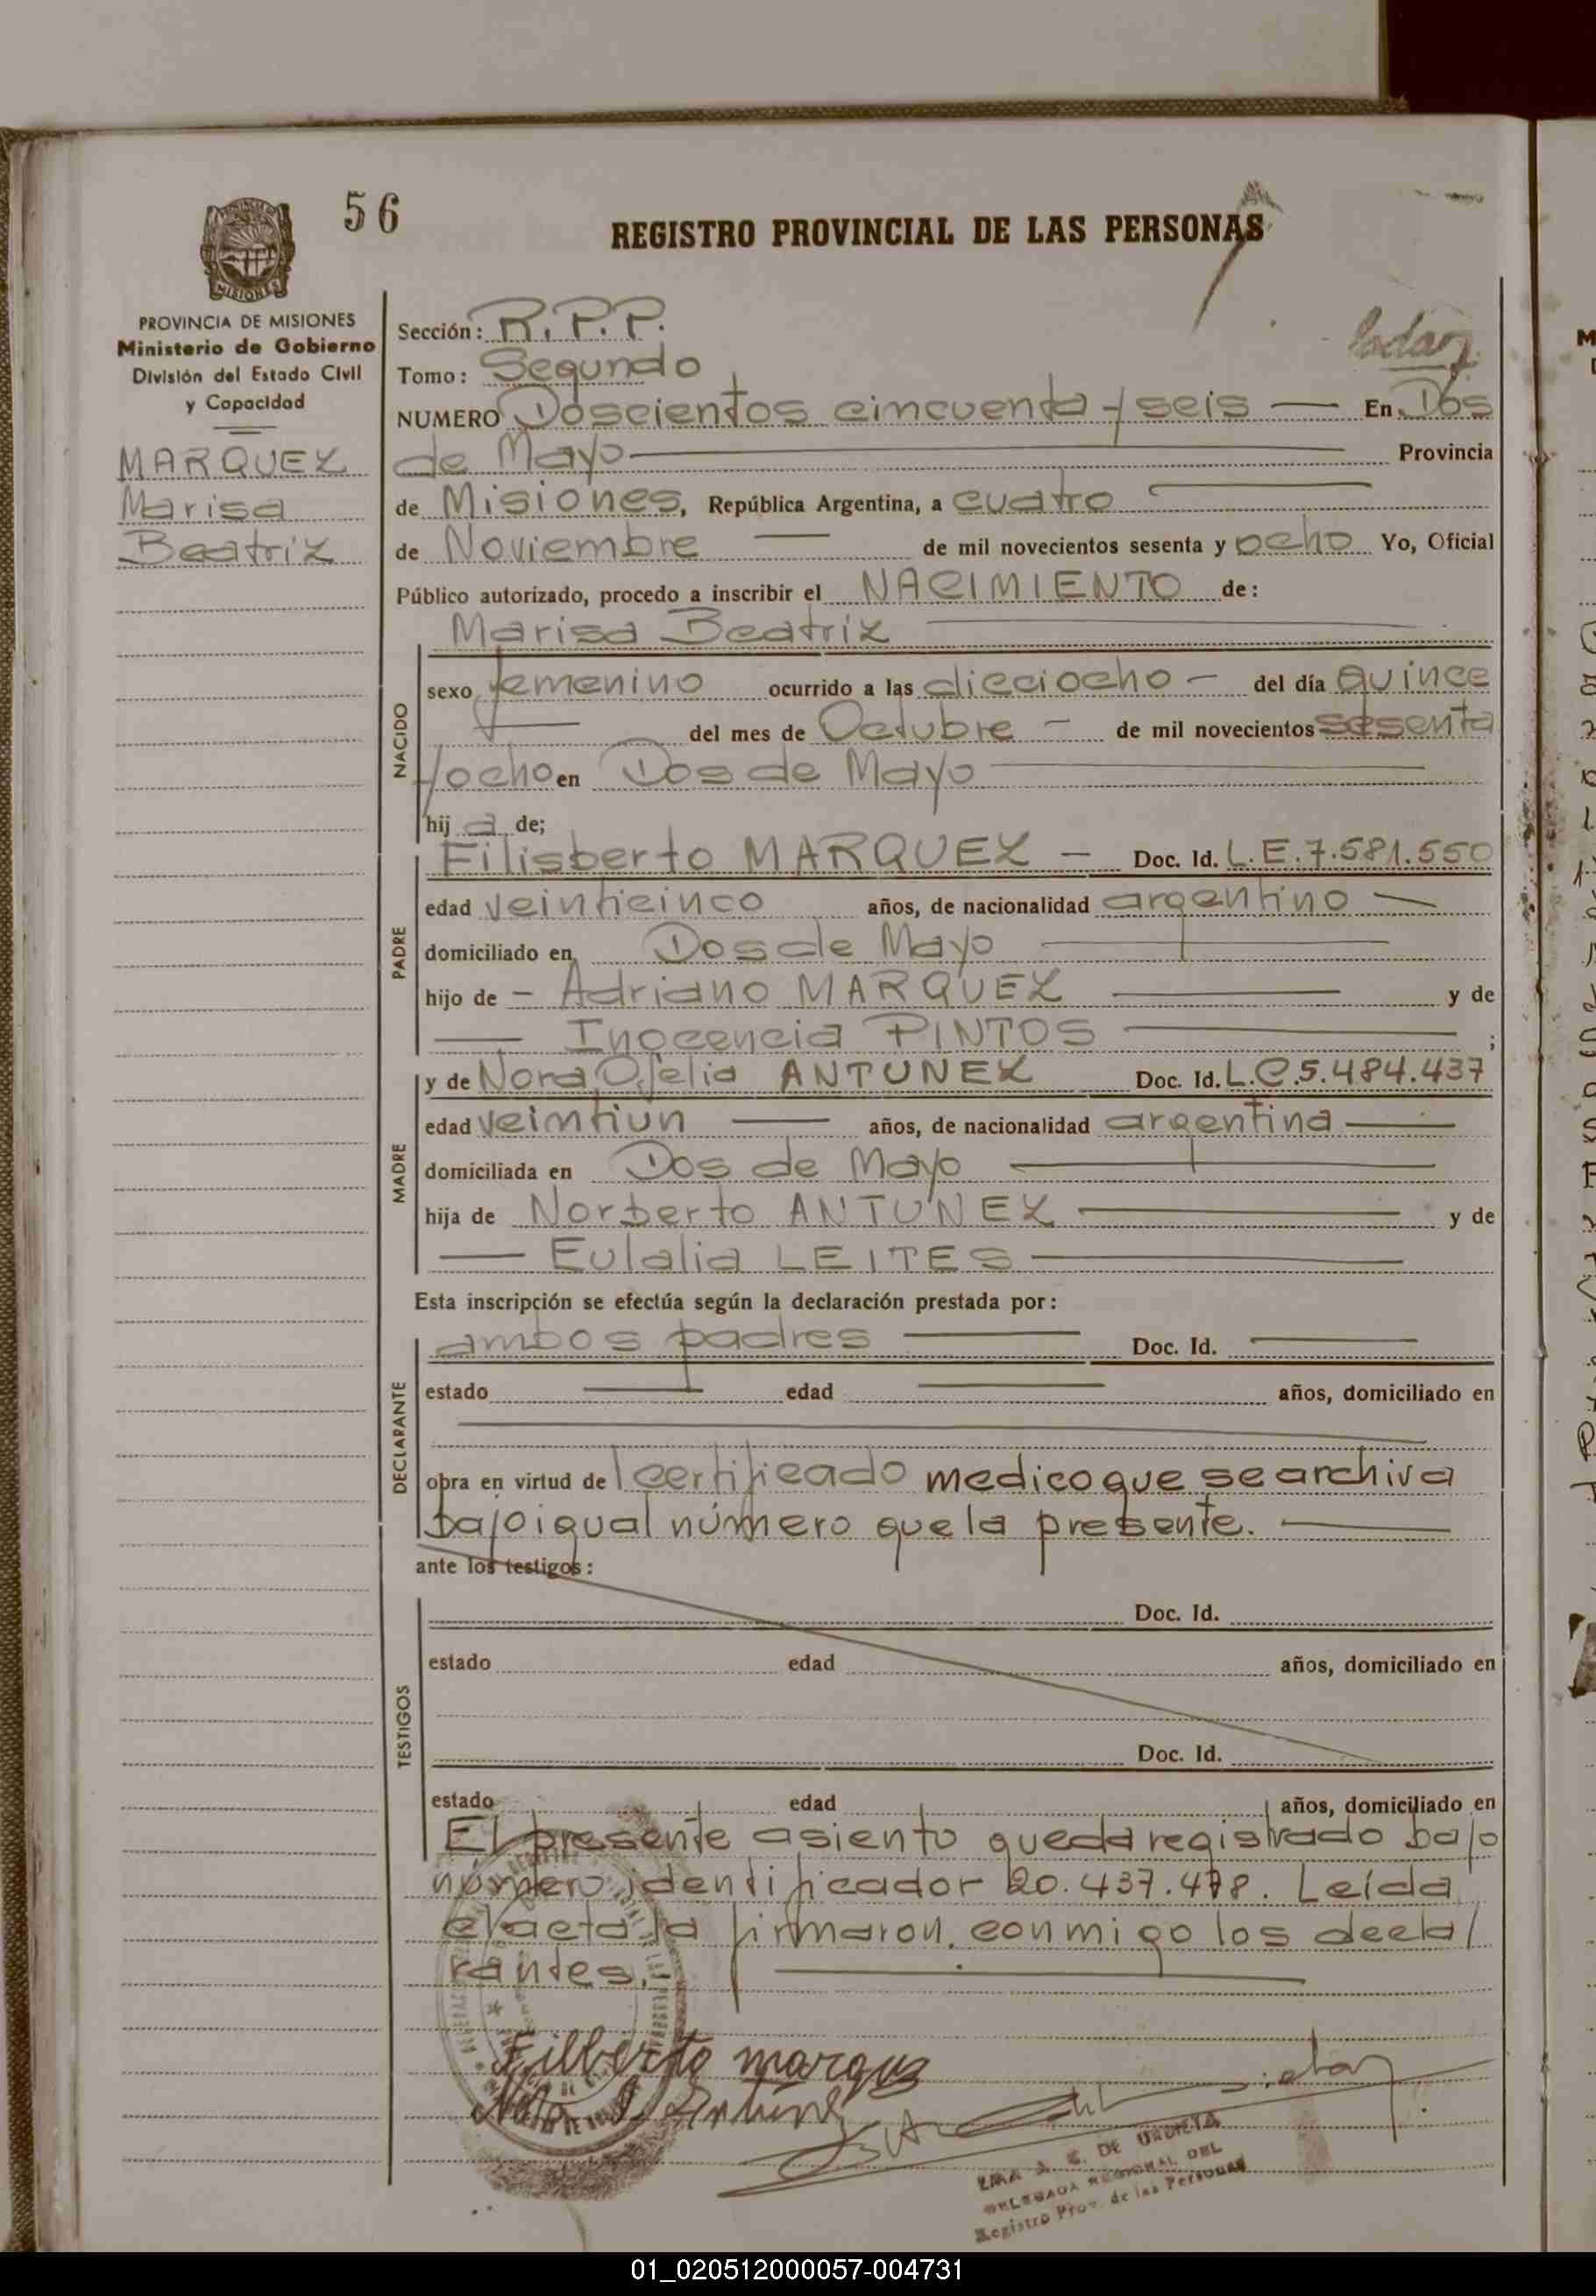 56
REGISTRO PROVINCIAL DE LAS PERSONAS
MISIONES
PROVINCIA DE MISIONES
Ministerio de Gobierno
División del Estado Civil
y Capacidad
MARQUEZ
Marisa
Beatriz
Sección: R.P.P.
Tomo: Segundo
NUMERO Doscientos cincuenta y seis — En Dos
de Mayo — Provincia
de Misiones, República Argentina, a cuatro —
de Noviembre — de mil novecientos sesenta y ocho Yo, Oficial
Público autorizado, procedo a inscribir el NACIMIENTO de:
Marisa Beatriz —
NACIDO
sexo femenino ocurrido a las dieciocho — del día quince
— del mes de Octubre — de mil novecientos sesenta
y ocho en Dos de Mayo —
hij a de;
PADRE
Filisberto MARQUEZ — Doc. Id. L.E.7.581.550
edad veinticinco años, de nacionalidad argentino —
domiciliado en Dos de Mayo —
hijo de — Adriano MARQUEZ — y de
— Inocencia PINTOS — ;
MADRE
y de Nora Ofelia ANTUNEZ Doc. Id. L.C.5.484.437
edad veintiun — años, de nacionalidad argentina —
domiciliada en Dos de Mayo —
hija de Norberto ANTUNEZ — y de
— Eulalia LEITES —
Esta inscripción se efectúa según la declaración prestada por:
DECLARANTE
ambos padres — Doc. Id. —
estado — edad — años, domiciliado en
—
obra en virtud de l certificado medico que se archiva
bajo igual número que la presente. —
ante los testigos:
TESTIGOS
Doc. Id.
estado edad años, domiciliado en
Doc. Id.
estado edad años, domiciliado en
El presente asiento queda registrado bajo
número identificador 20.437.478. Leída
el acta, la firmaron, conmigo los decla/
rantes. —
Filberto marquz
DE URDIETA
DELEGADA REGIONAL DEL
Registro Prov. de las Personas
01_020512000057-004731